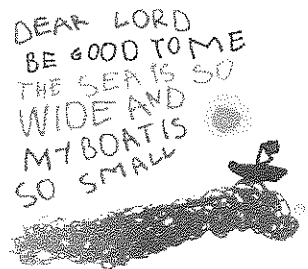 DEAR LORD
BE GOOD TO ME
THE SEA IS SO
WIDE AND
MY BOAT IS
SO SMALL